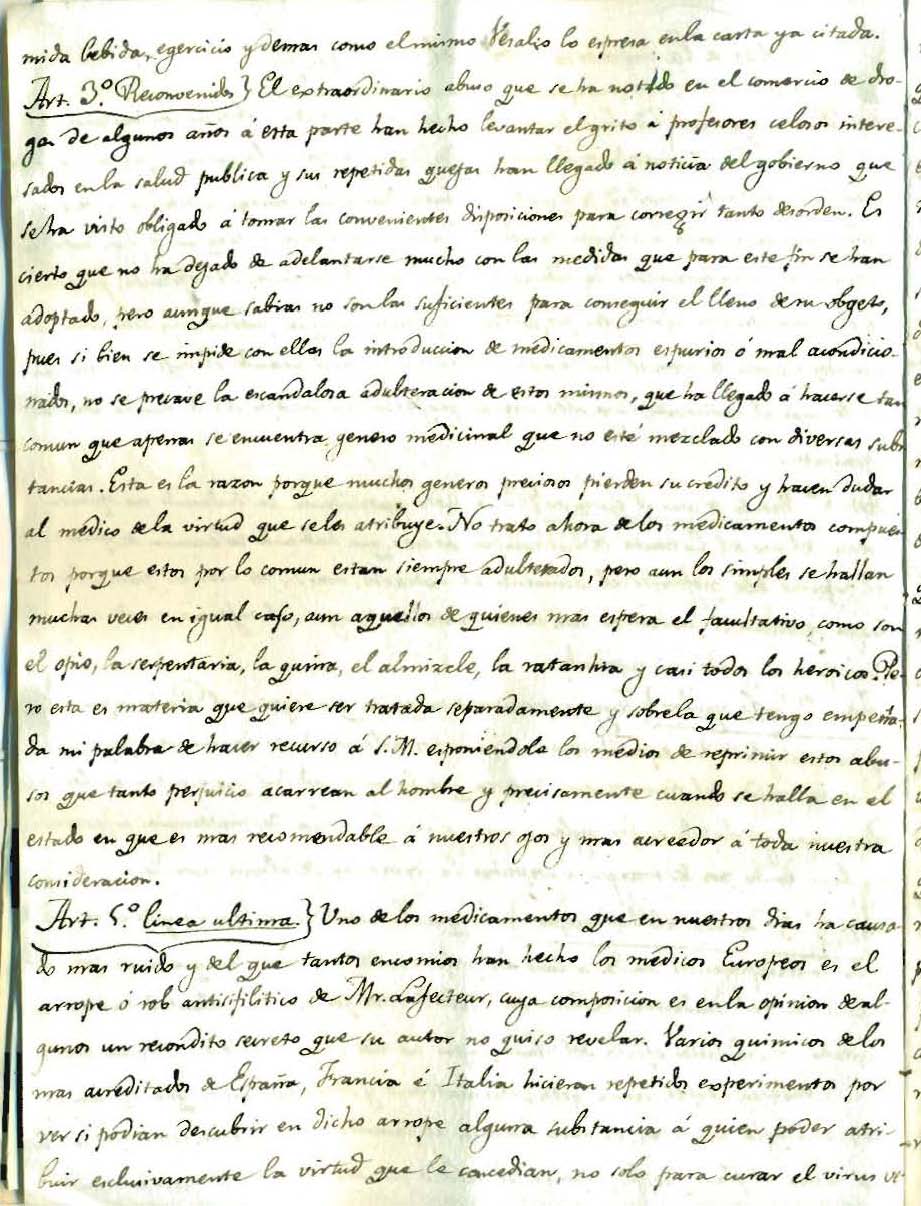 mida bebida, egercicio y demas como el mismo Vesalio lo espresa en la carta ya citada.
Art. 3.º Reconvenidos} El extraordinario abuso que se ha notado en el comercio de dro-
gas de algunos años á esta parte han hecho levantar el grito á profesores celosos intere-
sados en la salud publica y sus repetidas quejas han llegado á noticia del gobierno que
se ha visto obligado á tomar las convenientes disposiciones para corregir tanto desorden. Es
cierto que no ha dejado de adelantarse mucho con las medidas que para este fin se han
adoptado, pero aunque sabias no son las suficientes para conseguir el lleno de su obgeto,
pues si bien se impide con ellas la introduccion de medicamentos espurios ó mal acondicio-
nados, no se precave la escandalosa adulteracion de estos mismos, que ha llegado á hacerse tan
comun que apenas se encuentra genero medicinal que no esté mezclado con diversas subs
tancias. Esta es la razon porque muchos generos preciosos pierden su credito y hacen dudar
al medico de la virtud que se les atribuye. No trato ahora de los medicamentos compues
tos porque estos por lo comun estan siempre adulterados, pero aun los simples se hallan
muchas veces en igual caso, aun aquellos de quienes mas espera el facultativo, como son
el opio, la serpentaria, la quina, el almizcle, la ratanhia y casi todos los heroicos. Pe-
ro esta es materia que quiere ser tratada separadamente y sobre la que tengo empeña-
da mi palabra de hacer recurso á S.M. esponiendole los medios de reprimir estos abu-
sos que tanto perjuicio acarrean al hombre y precisamente cuando se halla en el
estado en que es mas recomendable á nuestros ojos y mas acreedor á toda nuestra
consideracion.
Art. 5.º linea ultima.} Uno de los medicamentos que en nuestros dias ha causa-
do mas ruido y del que tantos encomios han hecho los medicos Europeos es el
arrope ó rob antisifilitico de Mr. Lafecteur, cuya composicion es en la opinion de al-
gunos un recondito secreto que su autor no quiso revelar. Varios quimicos de los
mas acreditados de España, Francia é Italia hicieran repetidos experimentos por
ver si podian descubrir en dicho arrope alguna substancia á quien poder atri-
buir esclusivamente la virtud que le concedian, no solo para curar el virus ve-